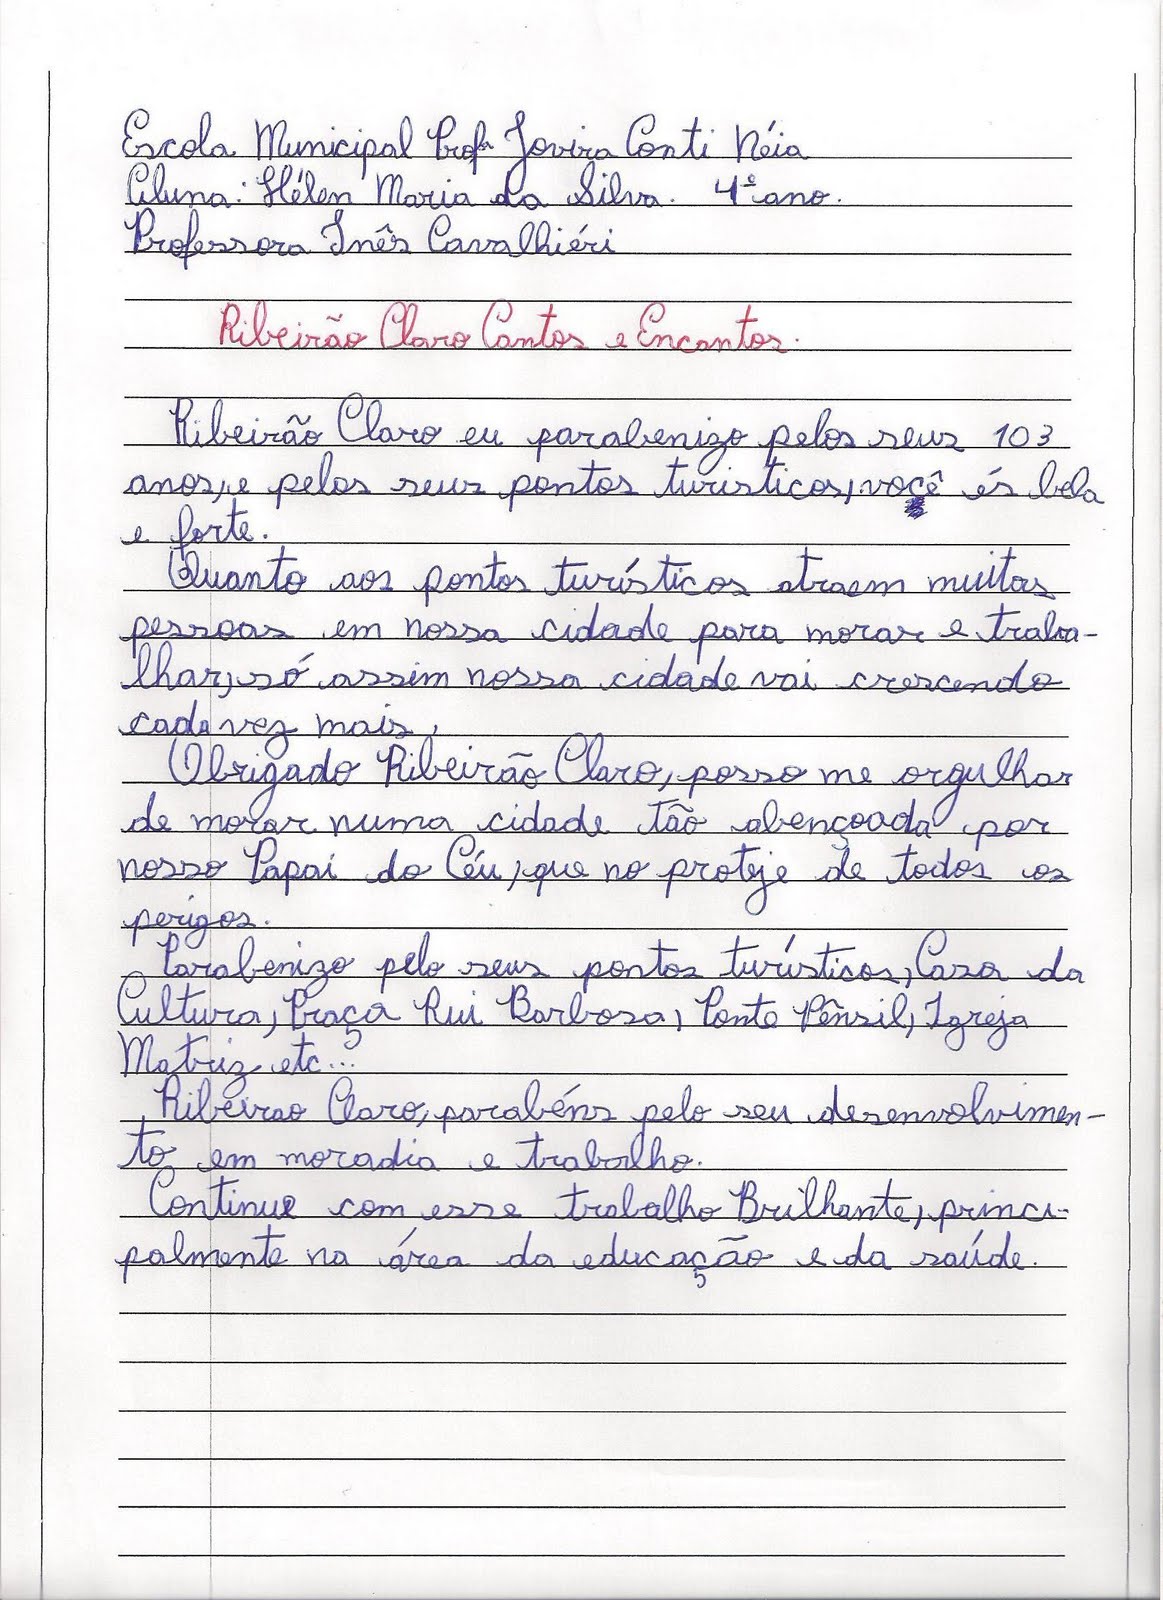 Escola Municipal Profª Jovira Conti Néia
Aluna: Hélen Maria da Silva. 4º ano.
Professora Inês Cavalhiéri
Ribeirão Claro Cantos e Encantos.
Ribeirão Claro eu parabenizo pelos seus 103
anos, e pelos seus pontos turisticos, você és bela
e forte.
Quanto aos pontos turísticos atraem muitas
pessoas em nossa cidade para morar e traba-
lhar, só assim nossa cidade vai crescendo
cada vez mais.
Obrigado Ribeirão Claro, posso me orgulhar
de morar numa cidade tão abençoada por
nosso Papai do Céu, que no proteje de todos os
perigos.
Parabenizo pelo seus pontos turísticos, Casa da
Cultura, Praça Rui Barbosa, Ponte Pênsil, Igreja
Matriz etc...
Ribeirao Claro, parabéns pelo seu desenvolvimen-
to em moradia e trabalho.
Continue com esse trabalho Brilhante, princi-
palmente na área da educação e da saúde.